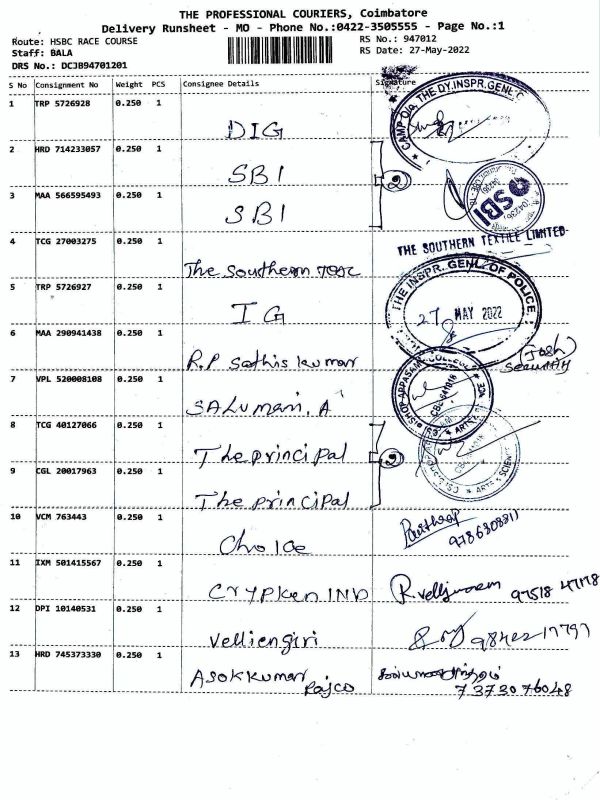 THE PROFESSIONAL COURIERS, Coimbatore
Delivery Runsheet - MO - Phone No.:0422-3505555 - Page No.:1
Route: HSBC RACE COURSE RS No.: 947012
Staff: BALA RS Date: 27-May-2022
DRS No.: DCJB94701201
S No Consignment No Weight PCS Consignee Details Signature
1 TRP 5726928 0.250 1 DIG
CAMP O/o, THE DY.INSPR.GENL
2 HRD 714233057 0.250 1 SBI
2
3 MAA 566595493 0.250 1 SBI
SBI
THE SOUTHERN TEXTILE LIMITED
4 TCG 27003275 0.250 1 The Southern
5 TRP 5726927 0.250 1 IG
THE INSPR. GENL. OF POLICE
27 MAY 2022
6 MAA 290941438 0.250 1 R.P Sathis kumar
7 VPL 520008108 0.250 1 SALUMANI. A
BISHOP APPASAMY COLLEGE OF ARTS &
8 TCG 40127066 0.250 1 The principal
2
9 CGL 20017963 0.250 1 The principal
ARTS & SCIENCE
10 VCM 763443 0.250 1 Choice
11 IXM 501415567 0.250 1 CRYPKEN IND 97518 47178
12 DPI 10140531 0.250 1 Velliengiri 98422 17797
13 HRD 745373330 0.250 1 ASOKKUMAR
Rajco 7373076048